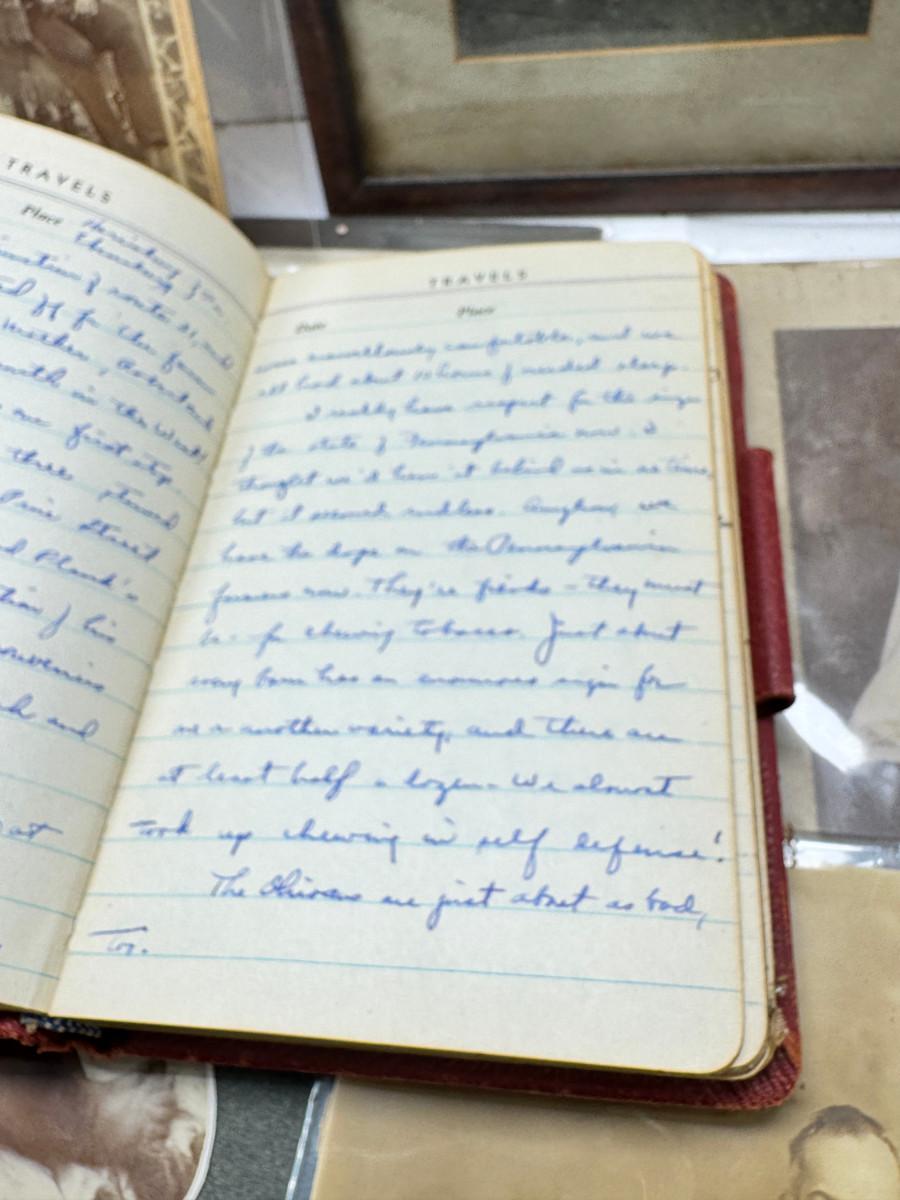 TRAVELS
Place
junction of route 31, and
off for the farm
Mother,
month in the West
our first stop
three
Pine Street
and Plank's
of his
souvenirs
and
at
TRAVELS
Date Place
were marvellously comfortable, and we
all had about 10 hours of needed sleep.
I really have respect for the size
of the state of Pennsylvania now. I
thought we'd have it behind us in no time,
but it seemed endless. Anyhow, we
have the dope on the Pennsylvania
farmers now. They're fiends - they must
be - for chewing tobacco. Just about
every barn has an enormous sign for
one or another variety, and there are
at least half a dozen. We almost
took up chewing in self defense!
The Ohioans are just about as bad,
too.